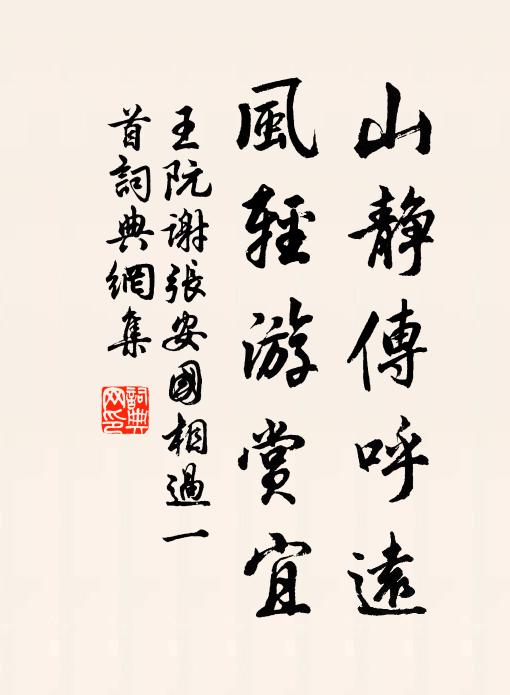 山靜傳呼遠
風輕游賞宜
王阮谢張安國相過一
首詞典網集
詞典
网印